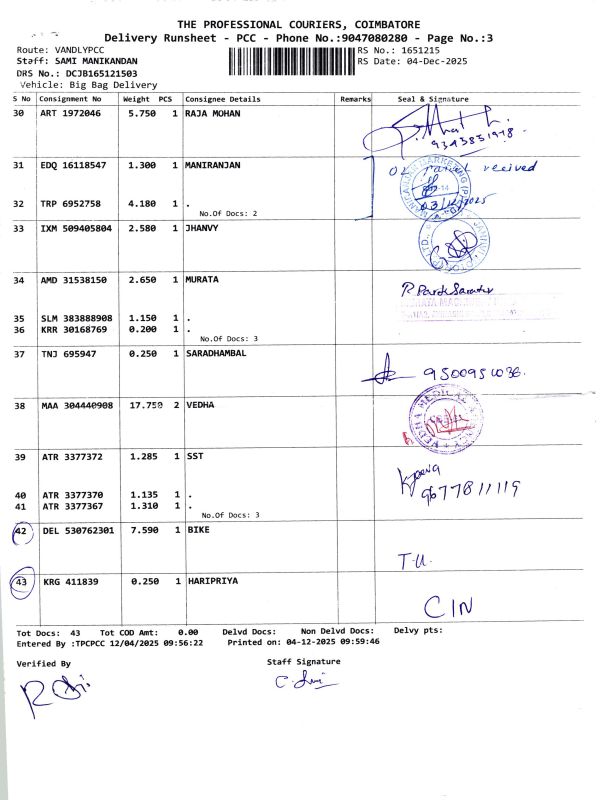 THE PROFESSIONAL COURIERS, COIMBATORE
Delivery Runsheet - PCC - Phone No.:9047080280 - Page No.:3
Route: VANDLYPCC RS No.: 1651215
Staff: SAMI MANIKANDAN RS Date: 04-Dec-2025
DRS No.: DCJB165121503
Vehicle: Big Bag Delivery
S No Consignment No Weight PCS Consignee Details Remarks Seal & Signature
30 ART 1972046 5.750 1 RAJA MOHAN
31 EDQ 16118547 1.300 1 MANIRANJAN
received
32 TRP 6952758 4.180 1 .
No.Of Docs: 2
33 IXM 509405804 2.580 1 JHANVY
34 AMD 31538150 2.650 1 MURATA
35 SLM 383888908 1.150 1 .
36 KRR 30168769 0.200 1 .
No.Of Docs: 3
37 TNJ 695947 0.250 1 SARADHAMBAL
38 MAA 304440908 17.750 2 VEDHA
VEDHA MEDICAL
39 ATR 3377372 1.285 1 SST
40 ATR 3377370 1.135 1 .
41 ATR 3377367 1.310 1 .
9677811119
No.Of Docs: 3
42 DEL 530762301 7.590 1 BIKE
T.U.
43 KRG 411839 0.250 1 HARIPRIYA
CIN
Tot Docs: 43 Tot COD Amt: 0.00 Delvd Docs: Non Delvd Docs: Delvy pts:
Entered By :TPCPCC 12/04/2025 09:56:22 Printed on: 04-12-2025 09:59:46
Verified By Staff Signature